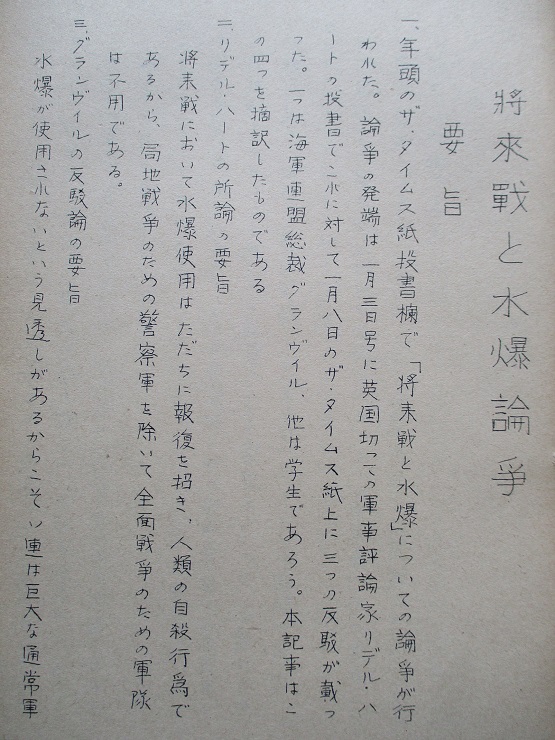 將來戰と水爆論爭
要旨
一、年頭のザ・タイムス紙投書欄で「将来戦と水爆」についての論爭が行
われた。論爭の発端は一月三日号に英国切っての軍事評論家リデル・ハ
ートの投書でこれに対して一月八日のザ・タイムス紙上に三つの反駁が載っ
った。一つは海軍連盟総裁グランヴイル、他は学生であろう。本記事はこ
の四つを摘訳したものである
二、リデル・ハートの所論の要旨
将来戦において水爆使用はただちに報復を招き、人類の自殺行爲で
あるから、局地戦爭のための警察軍を除いて全面戦爭のための軍隊
は不用である。
三、グランヴイルの反駁論の要旨
水爆が使用されないという見透しがあるからこそソ連は巨大な通常軍